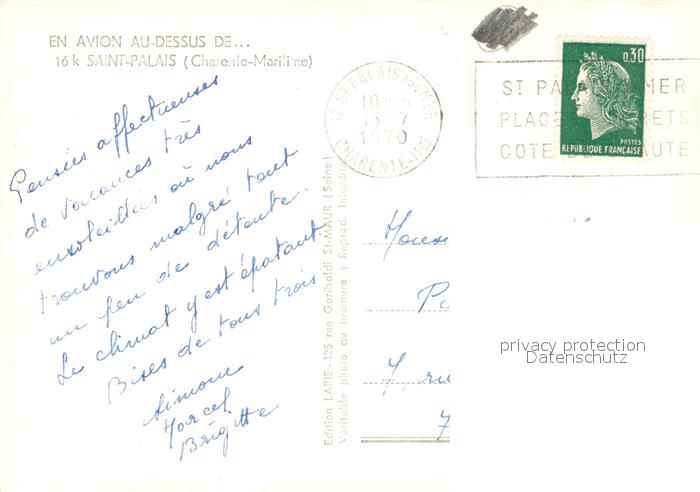 EN AVION AU-DESSUS DE...
16 k SAINT-PALAIS (Charente-Maritime)
Pensées affectueuses
de vacances très
ensoleillées où nous
trouvons malgré tout
un peu de détente.
Le climat y est épatant
Bises de tous trois
Simone
Marcel
Brigitte
Edition LAPIE - 125 rue Garibaldi St-MAUR (Seine)
Véritable photo au bromure : Reprod. Interdite
17 ST PALAIS SUR MER
18H
15-7
1970
CHARENTE-Mme
ST PA MER
PLAGE RETS
COTE DE AUTE
0,30
POSTES
REPUBLIQUE FRANÇAISE
privacy protection
Datenschutz